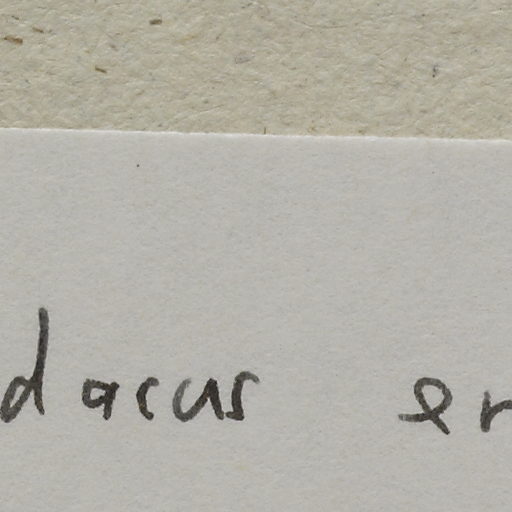 dacus er